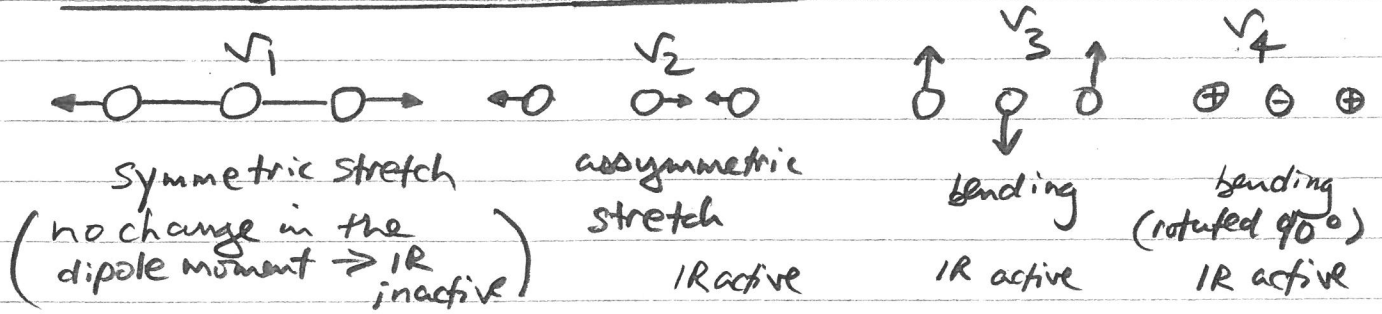 ν1 ν2 ν3 ν4
⊕ ⊖ ⊕
symmetric stretch
(no change in the
dipole moment ⇒ IR
inactive)
assymmetric
stretch
IR active
bending
IR active
bending
(rotated 90°)
IR active